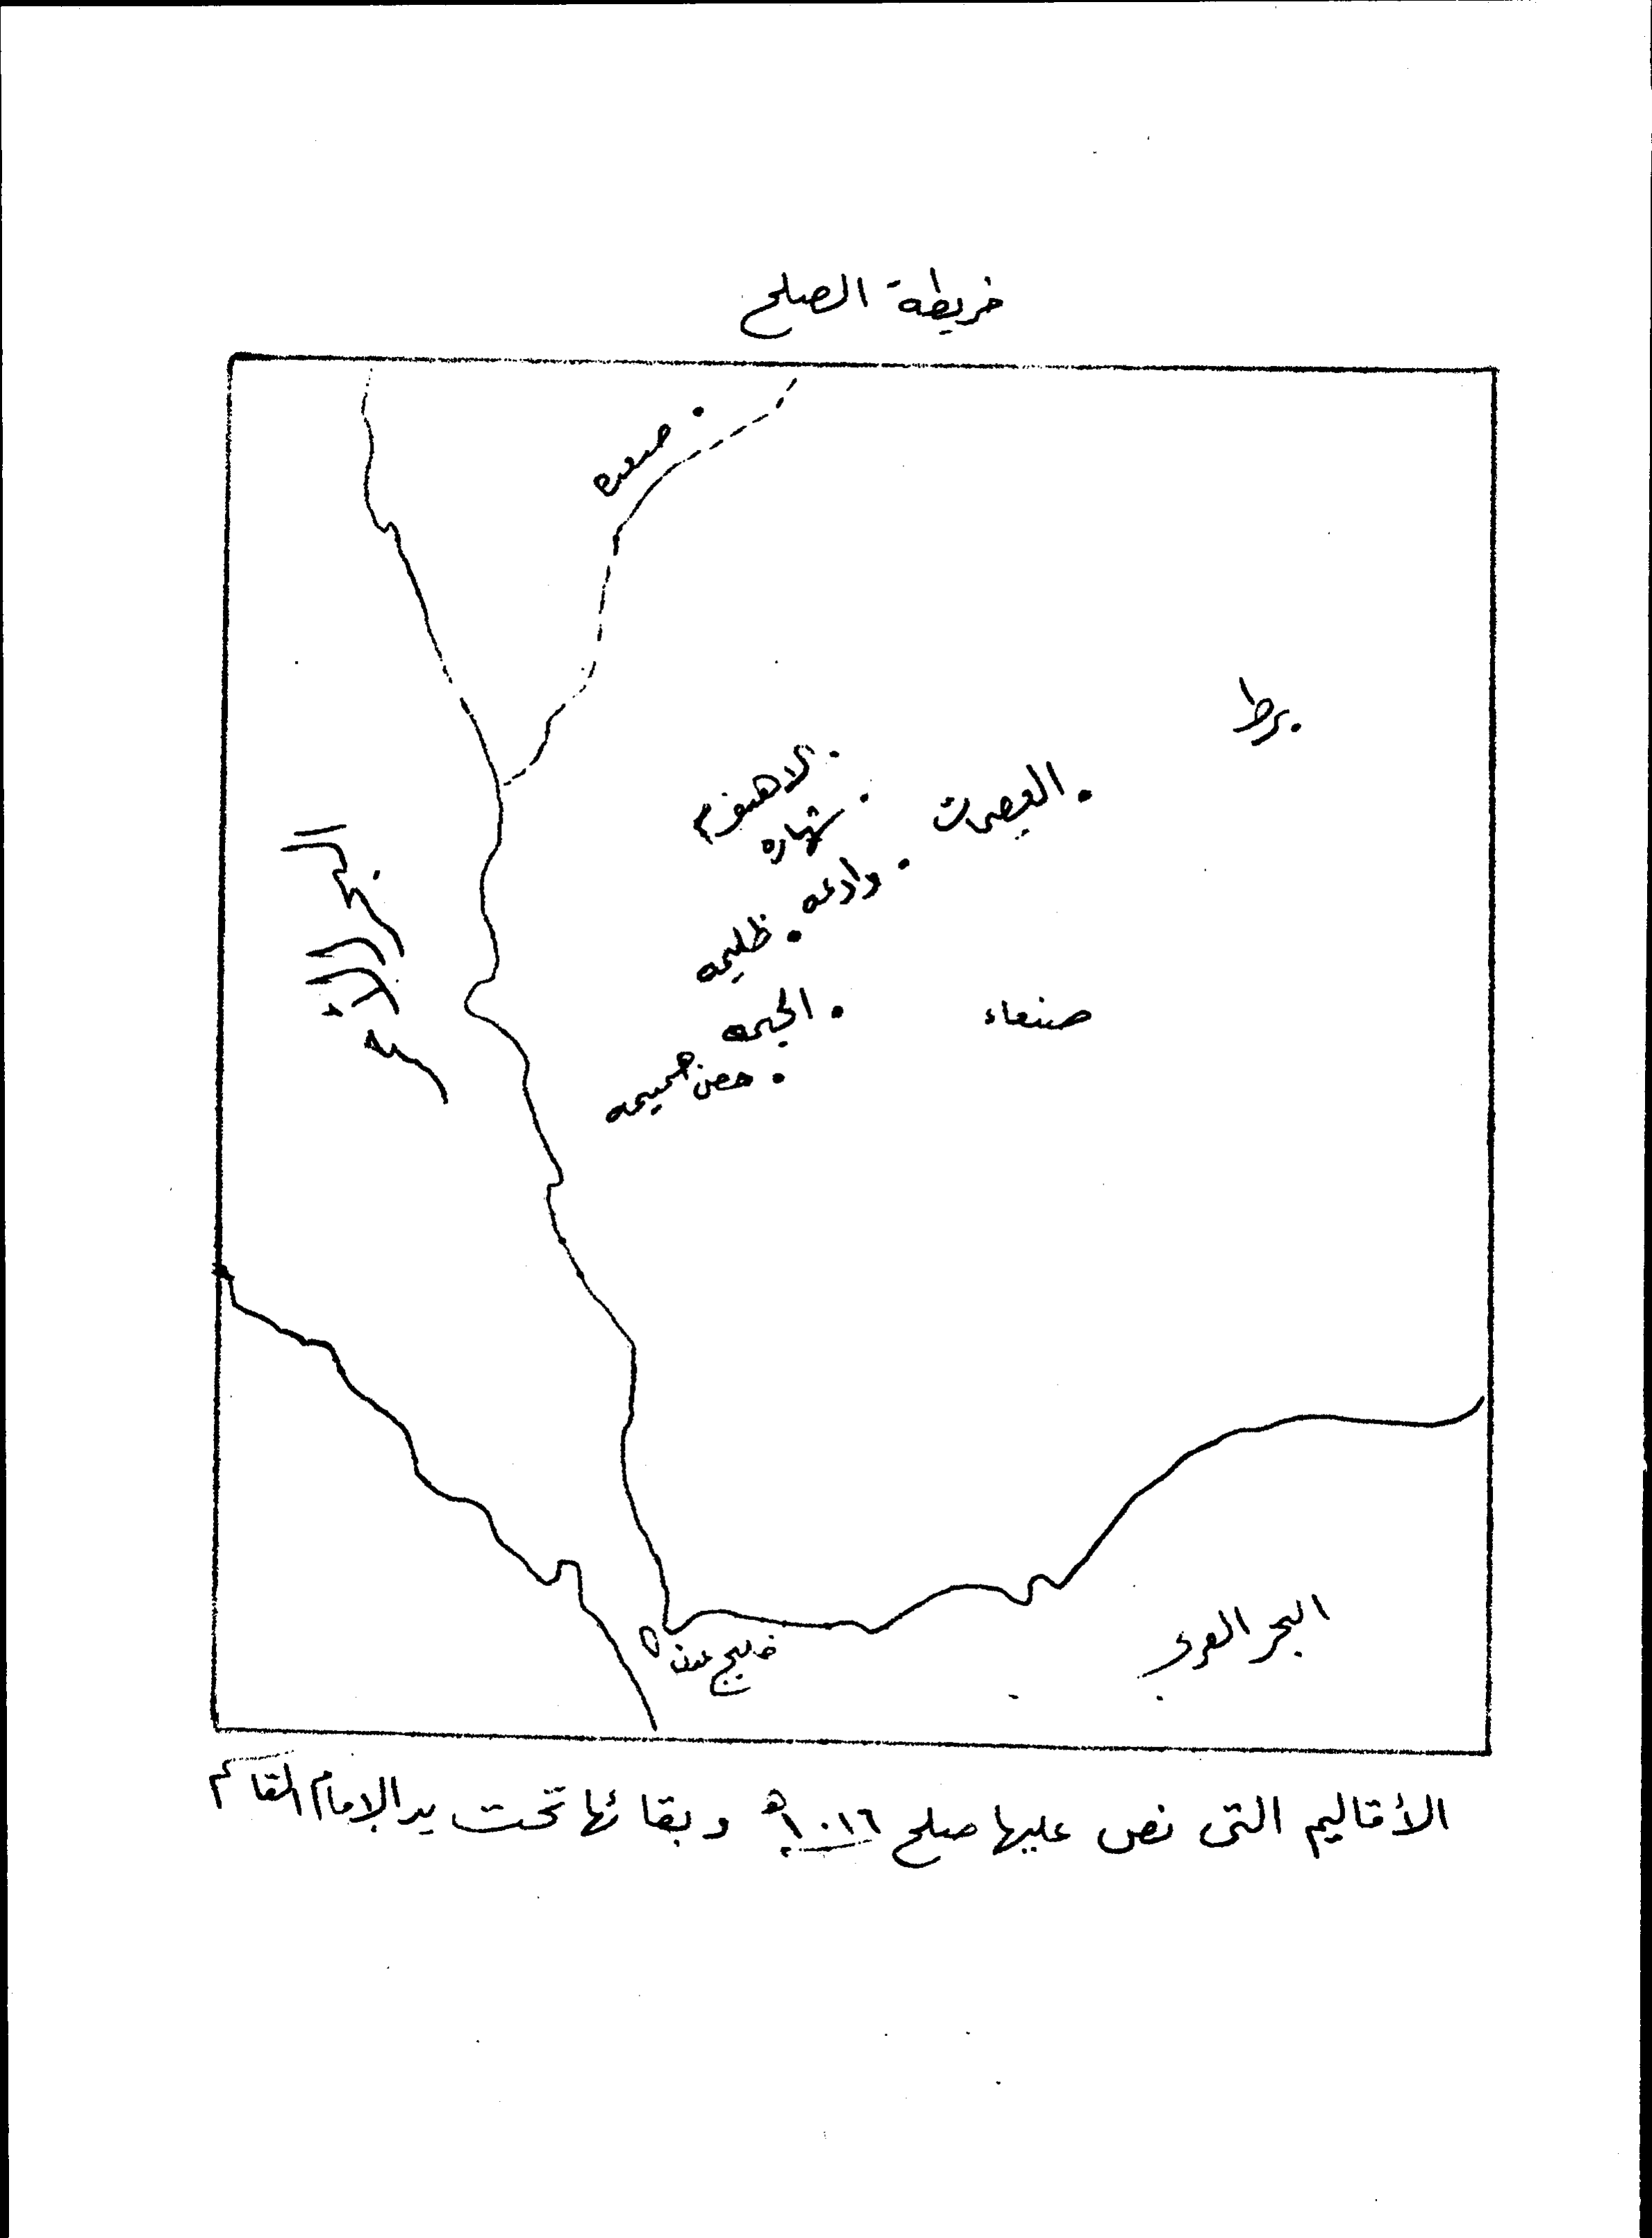 خريطة الصلح
صعده
برط
الاهنوم
شهاره
العصيمات
وادعه
ظليمه
الحيمه
صنعاء
حصن
البحر الأحمر
خليج عدن
البحر العربي
الأقاليم التى نص عليها صلح ١٠١٦هـ وبقائها تحت يد الإمام القاسم